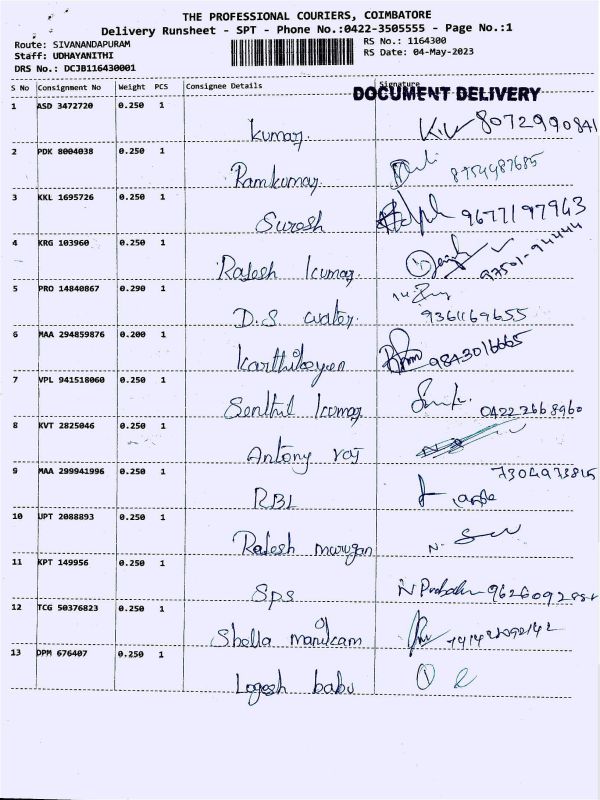 THE PROFESSIONAL COURIERS, COIMBATORE
Delivery Runsheet - SPT - Phone No.:0422-3505555 - Page No.:1
Route: SIVANANDAPURAM RS No.: 1164300
Staff: UDHAYANITHI RS Date: 04-May-2023
DRS No.: DCJB116430001
S No Consignment No Weight PCS Consignee Details Signature
DOCUMENT DELIVERY
1 ASD 3472720 0.250 1
Kumar. 8072990841
2 PDK 8004038 0.250 1
Ramkumar. 8754487685
3 KKL 1695726 0.250 1
Suresh 9677197963
4 KRG 103960 0.250 1
Rajesh Kumar. 97501-94444
5 PRO 14840867 0.290 1
D.S water. 9361169655
6 MAA 294859876 0.200 1
Karthikeyen 9843016665
7 VPL 941518060 0.250 1
Senthil Kumar 0422 2668960
8 KVT 2825046 0.250 1
Antony raj
9 MAA 299941996 0.250 1 7304973815
RBL
10 UPT 2088893 0.250 1
Rajesh murugan
11 KPT 149956 0.250 1
SPS
12 TCG 50376823 0.250 1
Shella manikam
13 DPM 676407 0.250 1
Logesh babu